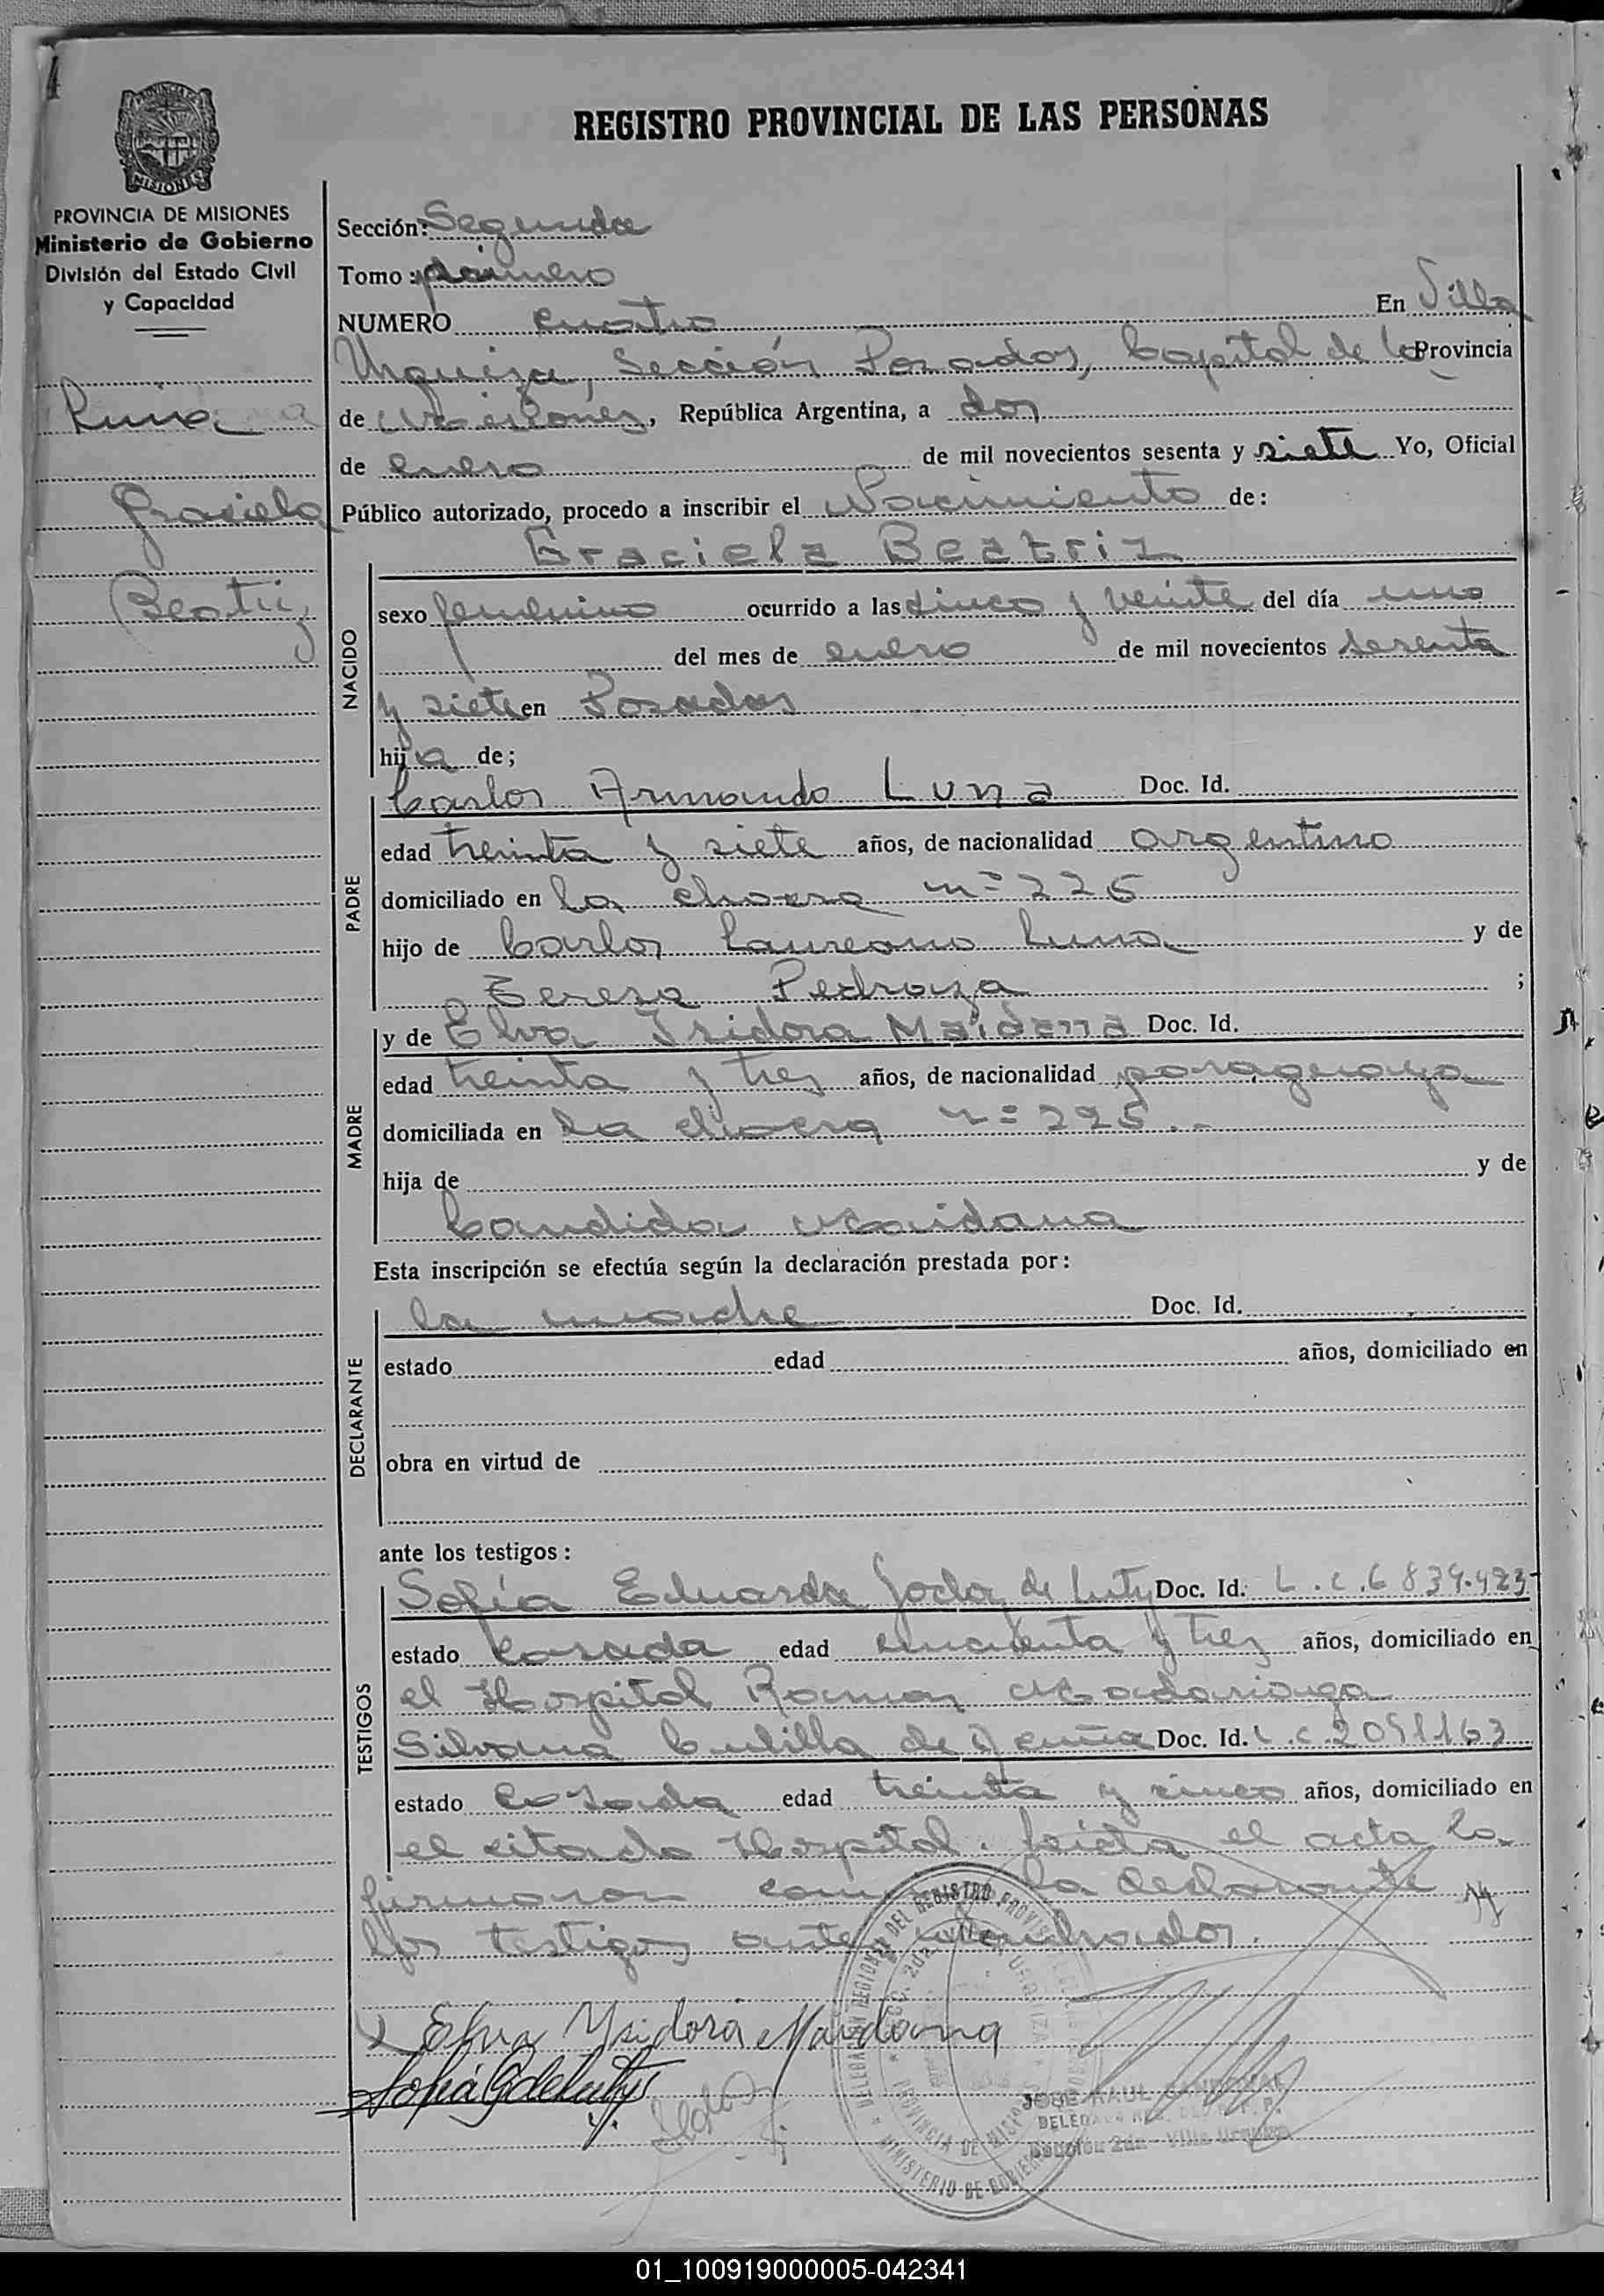 4
REGISTRO PROVINCIAL DE LAS PERSONAS
PROVINCIA DE MISIONES
Ministerio de Gobierno
División del Estado Civil
y Capacidad
Luna
Graciela
Beatriz
Sección: Segunda
Tomo: primero
NUMERO cuatro En Villa
Urquiza, Sección Posadas, Capital de la Provincia
de Misiones, República Argentina, a dos
de enero de mil novecientos sesenta y siete Yo, Oficial
Público autorizado, procedo a inscribir el Nacimiento de:
Graciela Beatriz
NACIDO
sexo femenino ocurrido a las cinco y veinte del día uno
del mes de enero de mil novecientos sesenta
y siete en Posadas
hija de;
PADRE
Carlos Armando Luna Doc. Id.
edad treinta y siete años, de nacionalidad argentino
domiciliado en la chacra nº 226
hijo de Carlos Laureano Luna y de
Teresa Pedroza ;
MADRE
y de Elva Isidora Maidana Doc. Id.
edad treinta y tres años, de nacionalidad paraguaya
domiciliada en la chacra nº 226.-
hija de y de
Candida Maidana
Esta inscripción se efectúa según la declaración prestada por:
DECLARANTE
la madre Doc. Id.
estado edad años, domiciliado en
obra en virtud de
ante los testigos:
TESTIGOS
Sofía Eduarda de Doc. Id. L.C. 6 839.423
estado casada edad cincuenta y tres años, domiciliado en
el Hospital Ramon Madariaga
Silvana de Doc. Id. L.C. 2051163
estado casada edad treinta y cinco años, domiciliado en
el citado Hospital. Leida el acta la
firmaron la declarante y
los testigos ante
DELEGACION REGIONAL DEL REGISTRO PROVINCIAL
MINISTERIO DE GOBIERNO
PROVINCIA DE MISIONES
Elva Ysidora Maidana
JOSE RAUL SANDOVAL
Sección 2da - Villa Urquiza
01_100919000005-042341